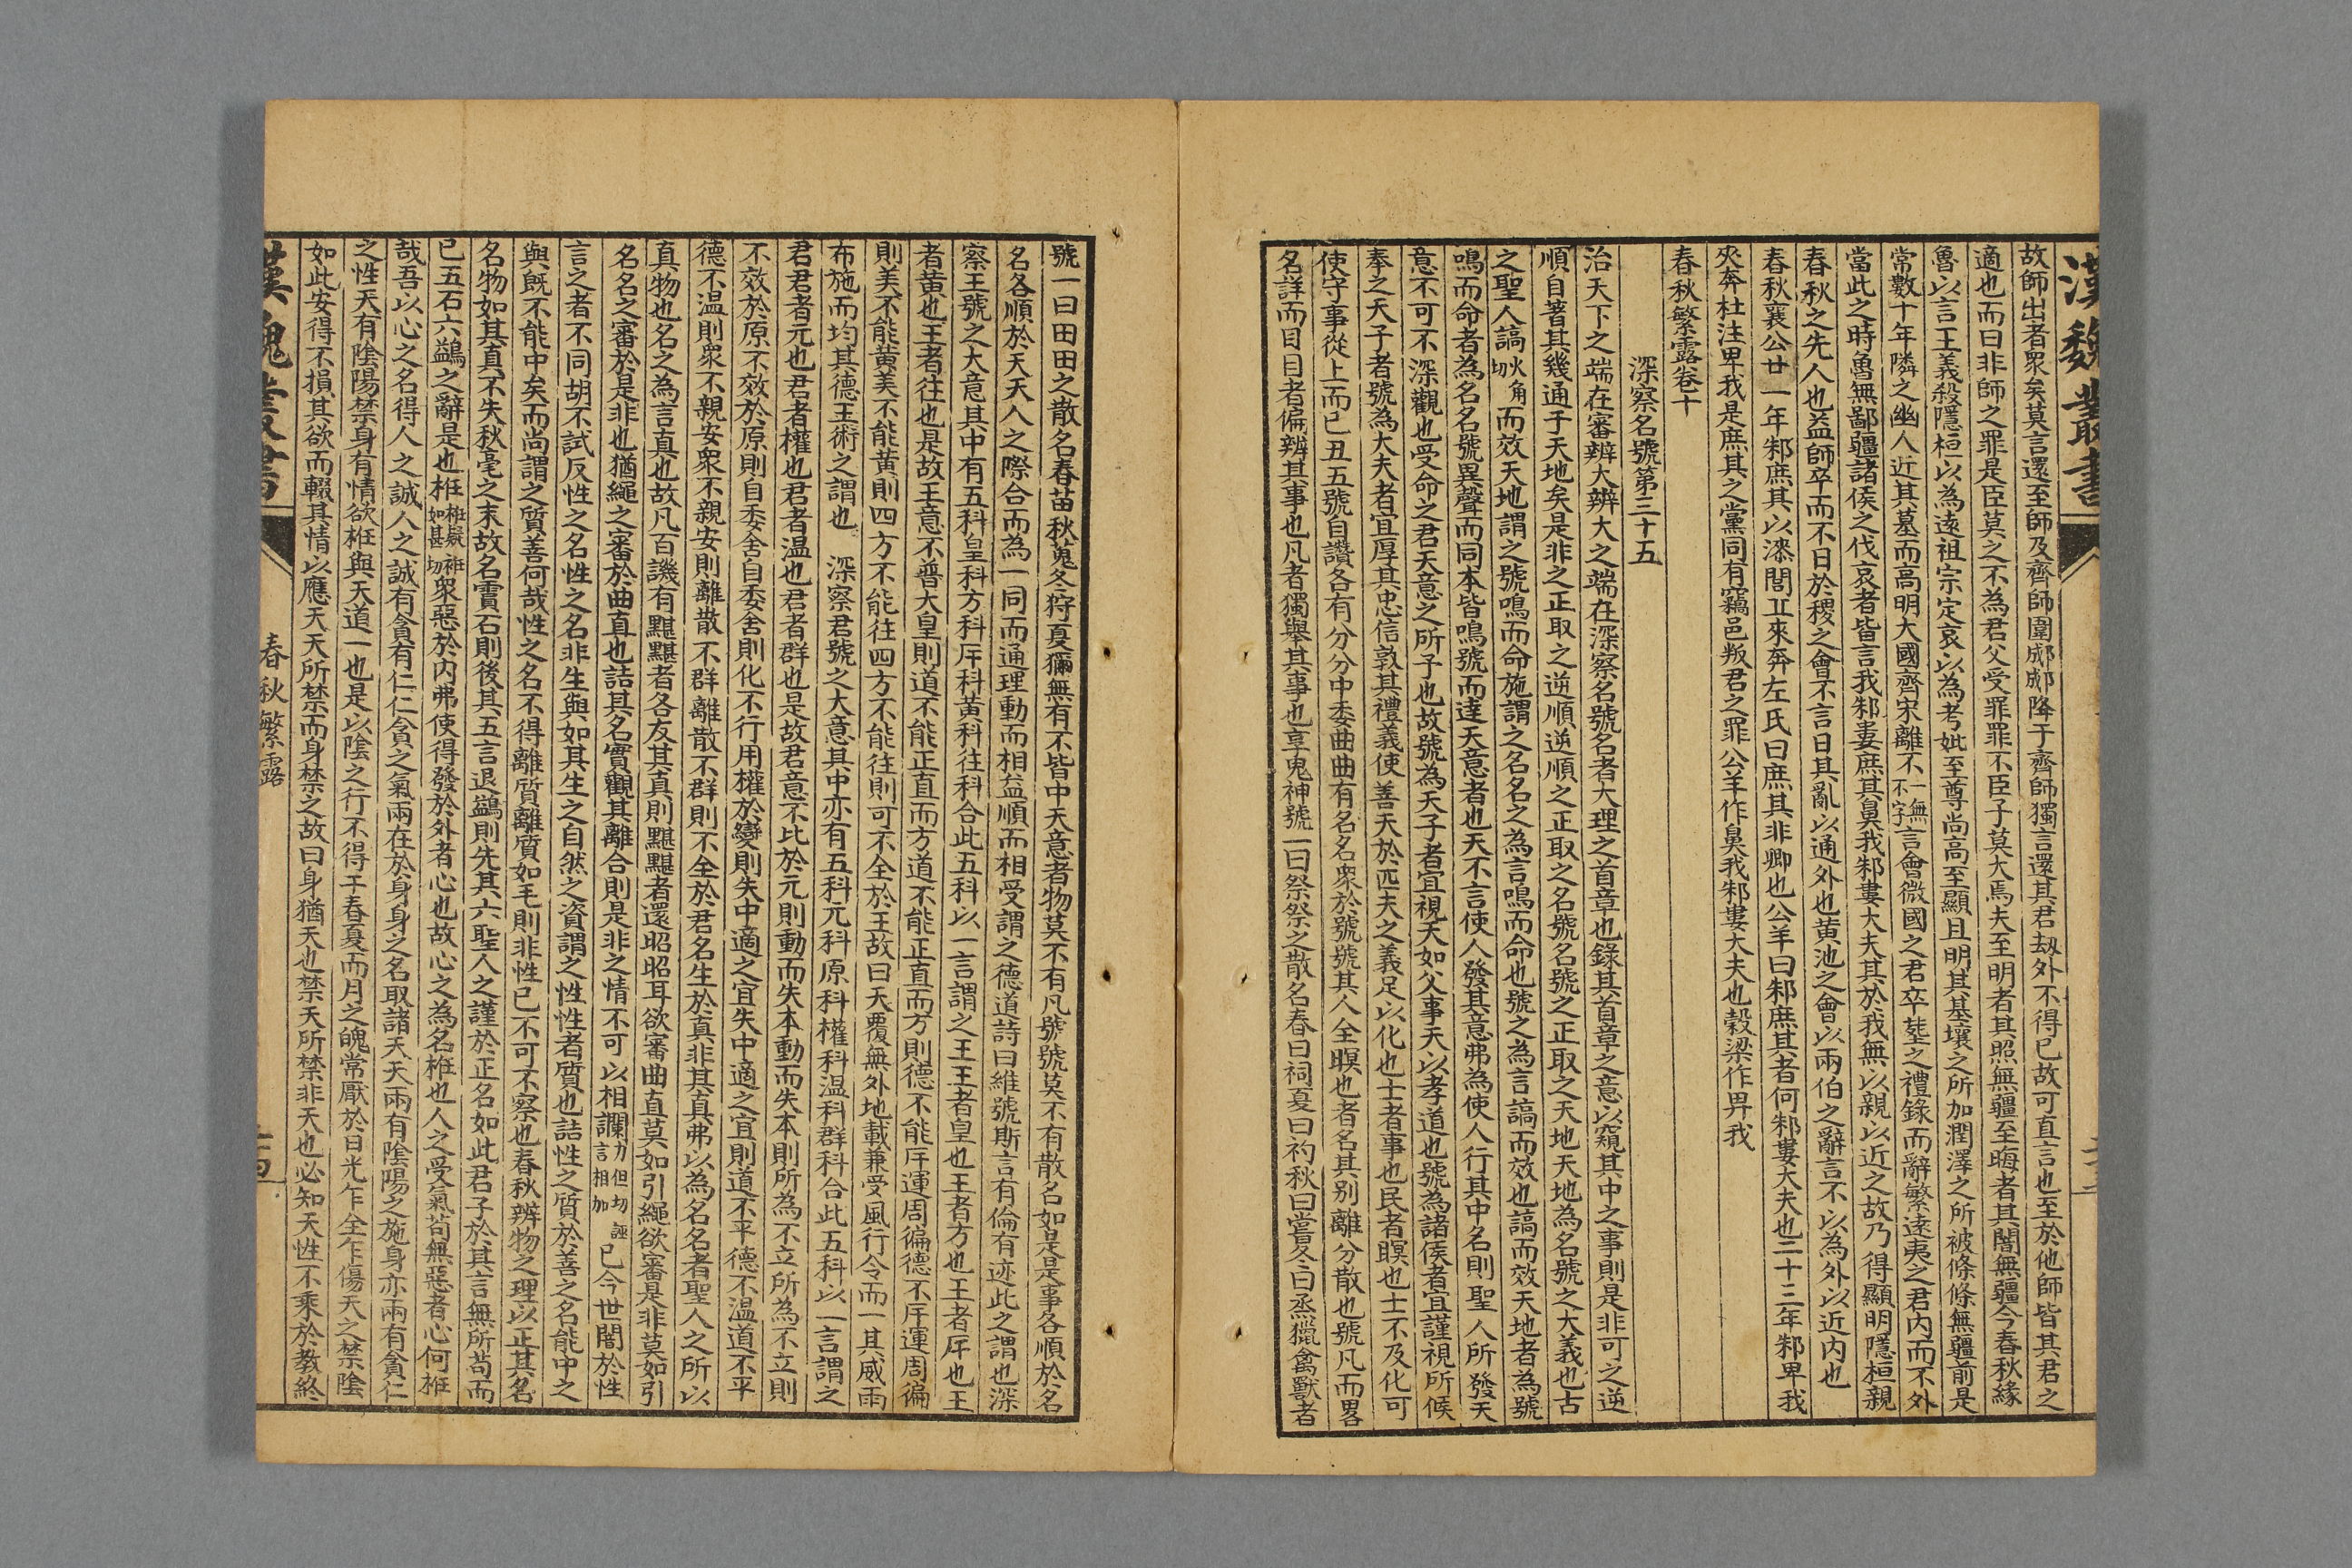 漢魏叢書
故師出者衆矣莫言還至師及齊師圍郕郕降于齊師獨言還其君劫外不得已故可直言也至於他師皆其君之
適也而曰非師之罪是臣莫之不為君父受罪罪不臣子莫大焉夫至明者其照無疆至晦者其闇無疆今春秋緣
魯以言王義殺隱桓以為遠祖宗定哀以為考妣至尊尚高至顯且明其基壤之所加潤澤之所被條條無疆前是
常數十年隣之幽人近其墓而高明大國齊宋離不一無不字言會微國之君卒葬之禮錄而辭繁遠夷之君內而不外
當此之時魯無鄙疆諸侯之伐哀者皆言我邾婁庶其鼻我邾婁大夫其於我無以親以近之故乃得顯明隱桓親
春秋之先人也益師卒而不日於稷之會不言日其亂以通外也黃池之會以兩伯之辭言不以為外以近內也
春秋襄公廿一年邾庶其以漆閭丘來奔左氏曰庶其非卿也公羊曰邾庶其者何邾婁大夫也二十三年邾卑我
來奔杜注卑我是庶其之黨同有竊邑叛君之罪公羊作鼻我邾婁大夫也榖梁作畀我
春秋繁露卷十
深察名號第三十五
治天下之端在審辨大辨大之端在深察名號名者大理之首章也錄其首章之意以窺其中之事則是非可之逆
順自著其幾通于天地矣是非之正取之逆順逆順之正取之名號名號之正取之天地天地為名號之大義也古
之聖人謞火角切而效天地謂之號鳴而命施謂之名名之為言鳴而命也號之為言謞而效也謞而效天地者為號
鳴而命者為名名號異聲而同本皆鳴號而達天意者也天不言使人發其意弗為使人行其中名則聖人所發天
意不可不深觀也受命之君天意之所予也故號為天子者宜視天如父事天以孝道也號為諸侯者宜謹視所候
奉之天子者號為大夫者宜厚其忠信敦其禮義使善天於匹夫之義足以化也士者事也民者瞑也士不及化可
使守事從上而已五號自讚各有分分中委曲曲有名名衆於號號其人全瞑也者名其别離分散也號凡而畧
名詳而目目者徧辨其事也凡者獨舉其事也享鬼神號一曰祭祭之散名春曰祠夏曰礿秋曰嘗冬曰烝獵禽獸者
號一曰田田之散名春苗秋蒐冬狩夏獮無有不皆中天意者物莫不有凡號號莫不有散名如是是事各順於名
名各順於天天人之際合而為一同而通理動而相益順而相受謂之德道詩曰維號斯言有倫有迹此之謂也深
察王號之大意其中有五科皇科方科匡科黃科往科合此五科以一言謂之王王者皇也王者方也王者匡也王
者黃也王者往也是故王意不普大皇則道不能正直而方道不能正直而方則德不能匡運周徧德不匡運周徧
則美不能黃美不能黃則四方不能往四方不能往則可不全於王故曰天覆無外地載兼受風行令而一其威雨
布施而均其德王術之謂也 深察君號之大意其中亦有五科元科原科權科温科群科合此五科以一言謂之
君君者元也君者權也君者温也君者群也是故君意不比於元則動而失本動而失本則所為不立所為不立則
不效於原不效於原則自委舍自委舍則化不行用權於變則失中適之宜失中適之宜則道不平德不温道不平
德不温則衆不親安衆不親安則離散不群離散不群則不全於君名生於真非其真弗以為名名者聖人之所以
真物也名之為言真也故凡百譏有黮黮者各反其真則黮黮者還昭昭耳欲審曲直莫如引繩欲審是非莫如引
名名之審於是非也猶繩之審於曲直也詰其名實觀其離合則是非之情不可以相讕力但切誣言相加已今世闇於性
言之者不同胡不試反性之名性之名非生與如其生之自然之資謂之性性者質也詰性之質於善之名能中之
與既不能中矣而尚謂之質善何哉性之名不得離質離質如毛則非性已不可不察也春秋辨物之理以正其名
名物如其真不失秋毫之末故名霣石則後其五言退鷁則先其六聖人之謹於正名如此君子於其言無所苟而
已五石六鷁之辭是也栣栣疑袵如甚切衆惡於內弗使得發於外者心也故心之為名栣也人之受氣苟無惡者心何栣
哉吾以心之名得人之誠人之誠有貪有仁仁貪之氣兩在於身身之名取諸天天兩有陰陽之施身亦兩有貪仁
之性天有陰陽禁身有情欲栣與天道一也是以陰之行不得干春夏而月之魄常厭於日光乍全乍傷天之禁陰
如此安得不損其欲而輟其情以應天天所禁而身禁之故曰身猶天也禁天所禁非天也必知天性不乘於教終
漢魏叢書
春秋繁露